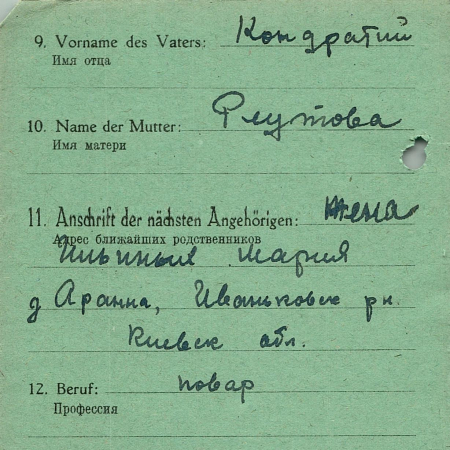 9. Vorname des Vaters: Кондратий
Имя отца
10. Name der Mutter: Реутова
Имя матери
11. Anschrift der nächsten Angehörigen: жена
Адрес ближайших родственников
Мария
д Аранна, Иваньковск рн.
Киевск обл.
12. Beruf: повар
Профессия